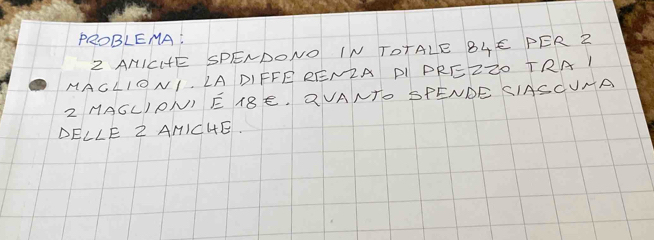 PROBLEMA:
2 AMICHE SPENDONO IN TOTALE 84€ PER 2
MAGLIONI. LA DIFFERENZA DI PREZZO TRA I
2 MAGLIONI É 18€. QUANTO SPENDE CIASCUNA
DELLE 2 AMICHE.